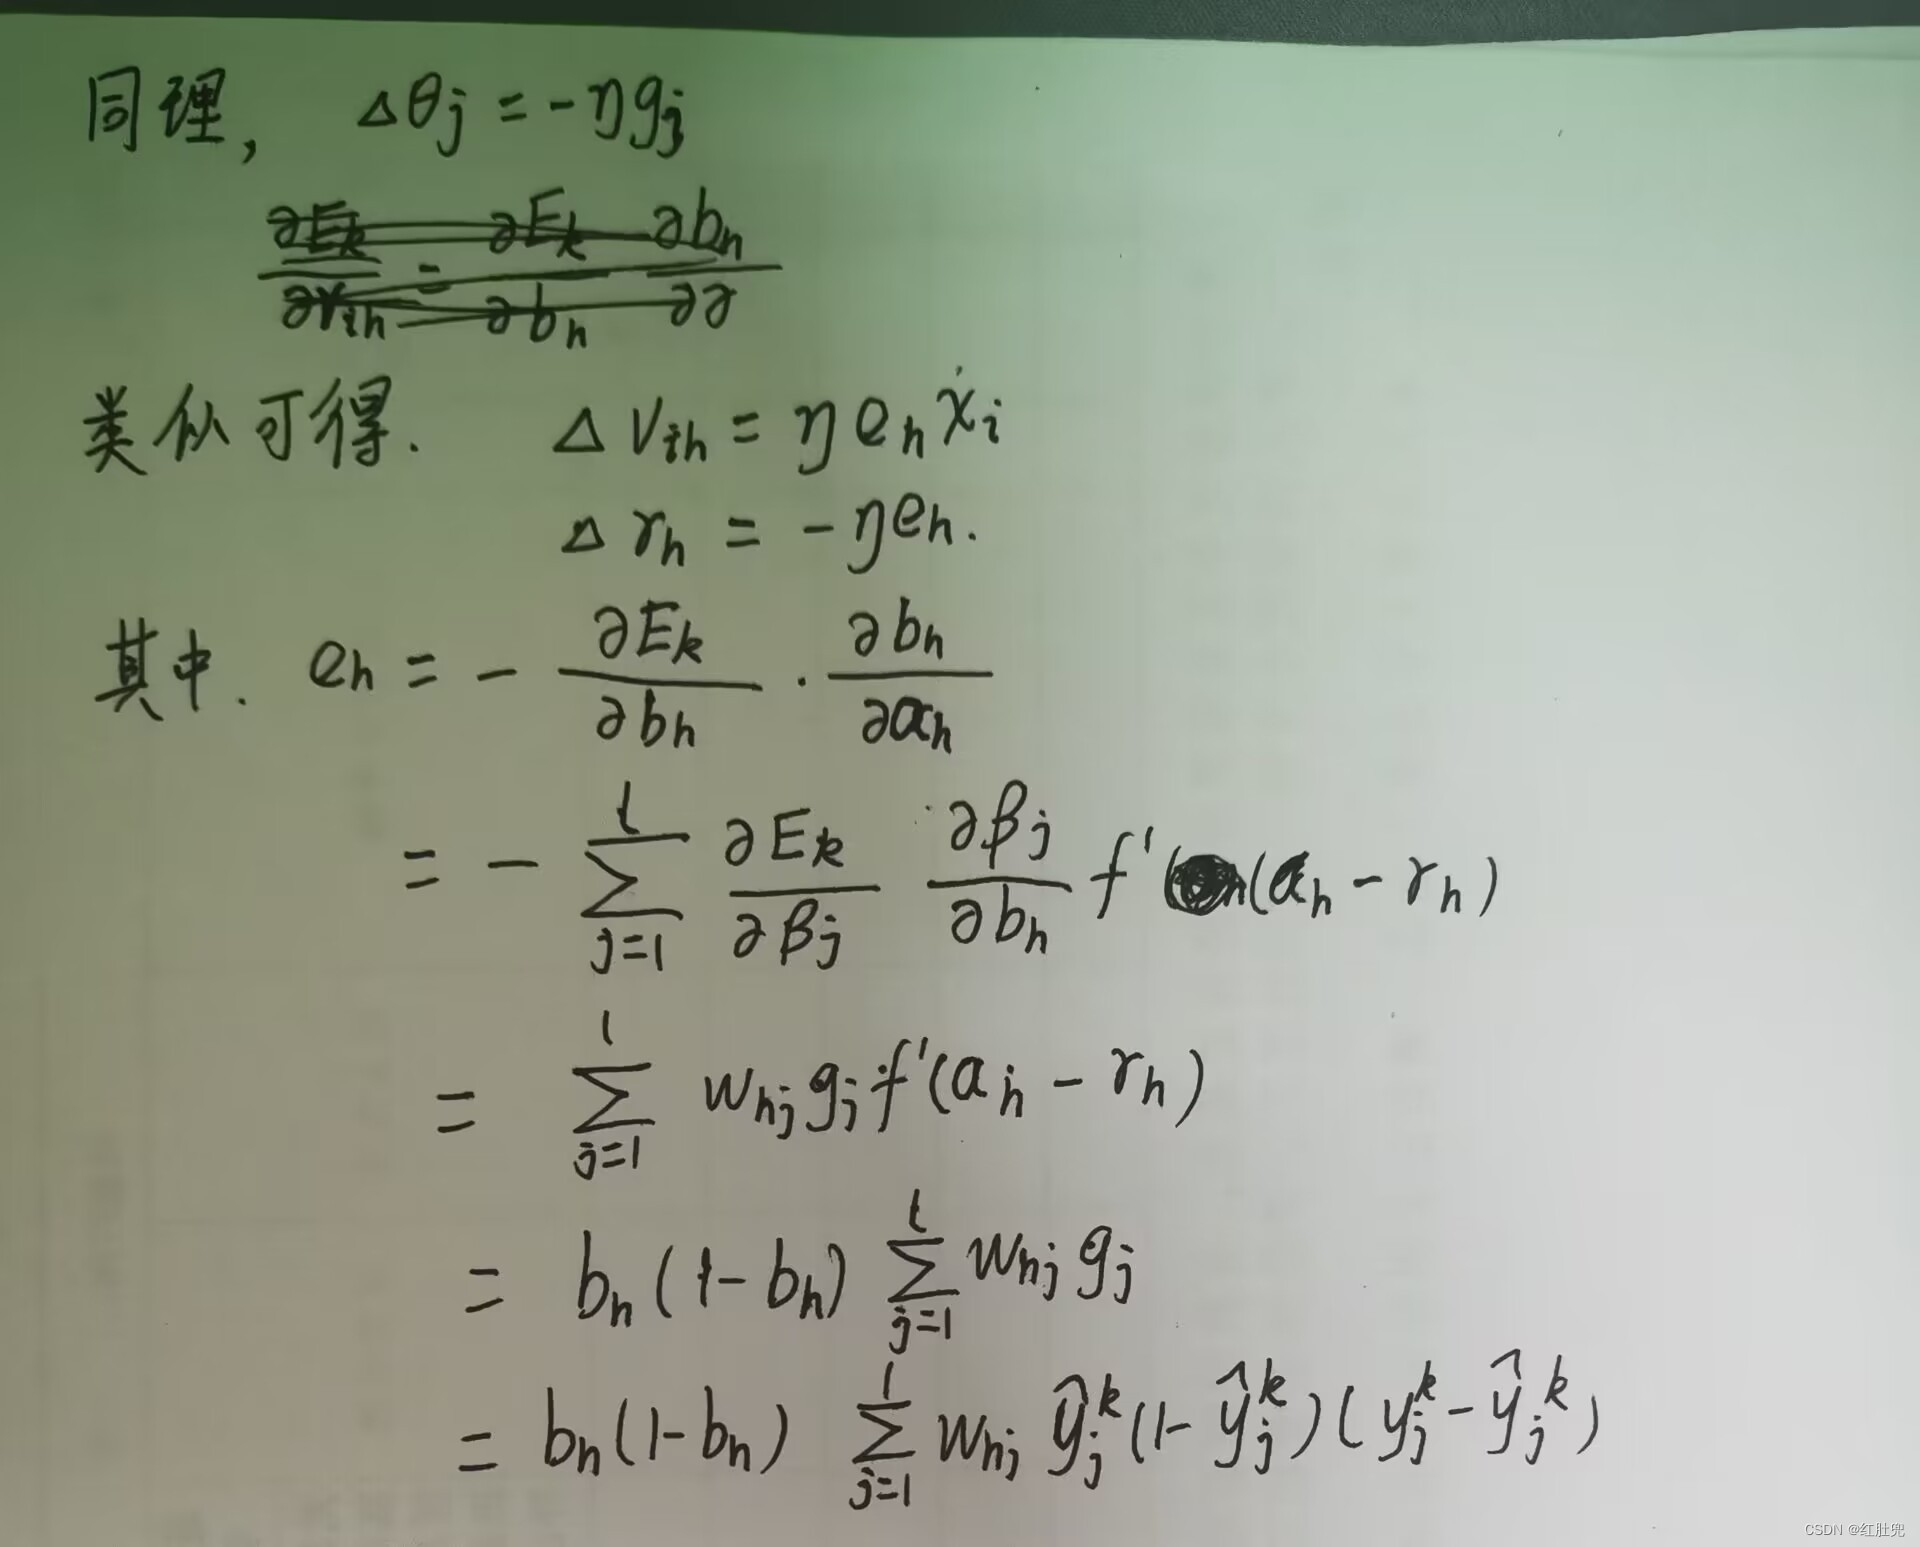 同理, Δθj = -ηgj
类似可得. Δvih = ηehxi
Δγh = -ηeh.
其中. eh = - ∂Ek/∂bh · ∂bh/∂αh
= - ∑_{j=1}^{l} ∂Ek/∂βj ∂βj/∂bh f'(αh - γh)
= ∑_{j=1}^{l} whj gj f'(αh - γh)
= bh(1-bh) ∑_{j=1}^{l} whj gj
= bh(1-bh) ∑_{j=1}^{l} whj ŷj^k(1-ŷj^k)(yj^k-ŷj^k)
CSDN @红肚兜